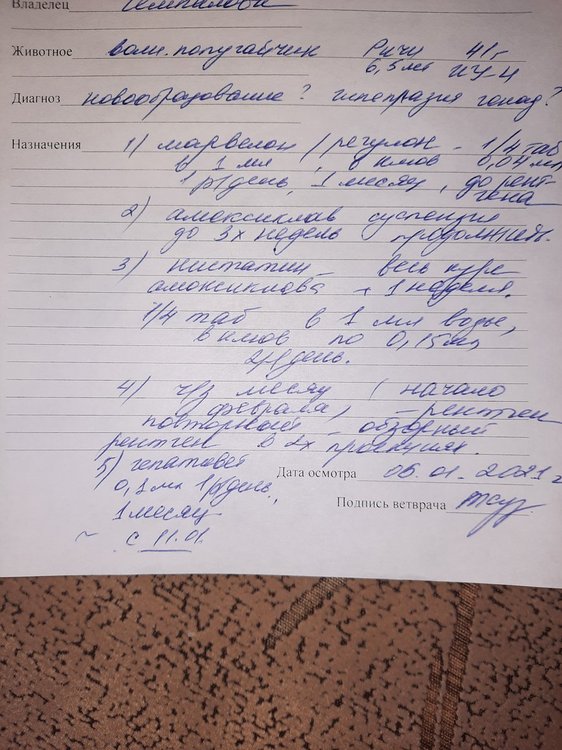 Владелец
Животное волн. попугайчик Ричи 41г
6,5 лет
Диагноз новообразование? гиперплазия гонад?
Назначения 1) марвелон / регулон - 1/4 таб
в 1 мл, в клюв 0,04 мл
1 р/день, 1 месяц, до рент-
гена
2) амоксиклав суспензия
до 3х недель продолжить.
3) нистатин - весь курс
амоксиклава + 1 неделя.
1/4 таб в 1 мл воды,
в клюв по 0,15 мл
2р/день.
4) ч/з месяц (начало
февраля) - рентген
повторный - обзорный
рентген в 2х проекциях.
5) гепатовет
0,1 мл 1р/день,
1 месяц
~ с 11.01.
Дата осмотра 06.01.2021 г
Подпись ветврача